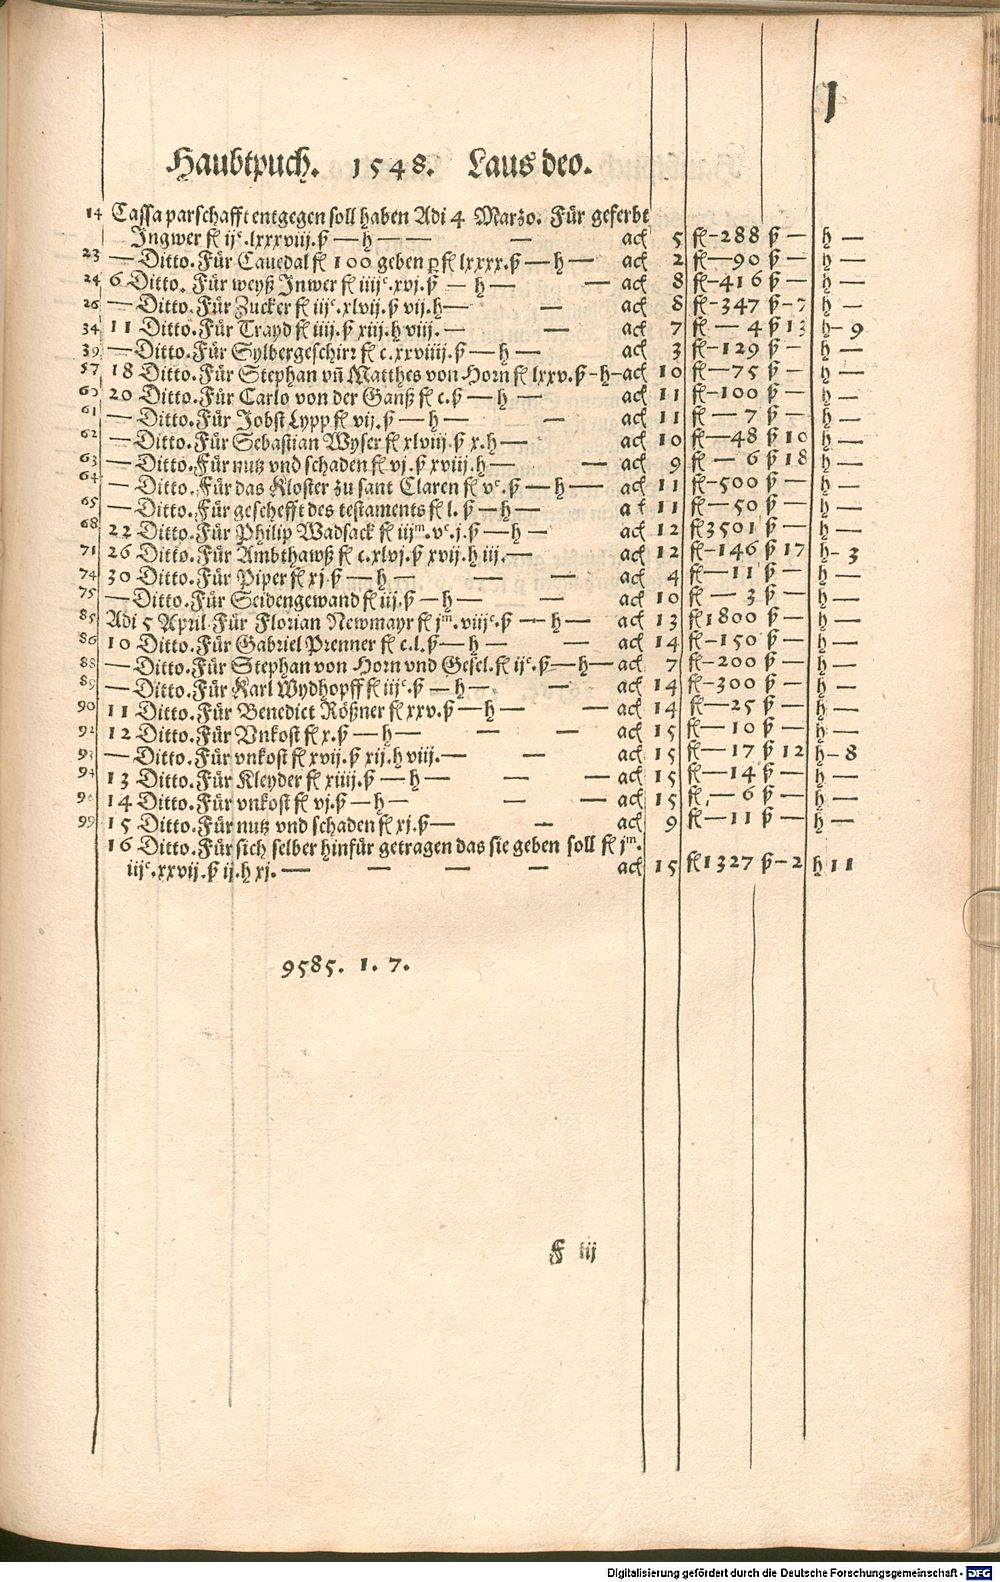 1
Haubtpuch. 1548. Laus deo.
14 Cassa parschafft entgegen soll haben Adi 4 Marzo. Für geferbt
Ingwer fl ijᶜ.lxxxviij.ß — h — — — acł 5 fl—288 ß — h —
23 — Ditto. Für Cauedal fl 100 geben ꝑ fl lxxxx.ß — h — acł 2 fl—90 ß — h —
24 6 Ditto. Für weyß Inwer fl iiijᶜ.xvj.ß — h — — acł 8 fl—416 ß — h —
26 — Ditto. Für Zucker fl iijᶜ.xlvij.ß vij.h — — acł 8 fl—347 ß—7 h —
34 11 Ditto. Für Trayd fl iiij.ß xiij.h viiij. — — acł 7 fl — 4 ß 13 h—9
39 — Ditto. Für Sylbergeschirr fl c.xxviiij.ß — h — acł 3 fl—129 ß — h —
57 18 Ditto. Für Stephan vñ Matthes von Horn fl lxxv.ß—h—acł 10 fl—75 ß — h —
60 20 Ditto. Für Carlo von der Ganß fl c.ß — h — acł 11 fl—100 ß — h —
61 — Ditto. Für Jobst Lypp fl vij.ß — h — — acł 11 fl — 7 ß — h —
62 — Ditto. Für Sebastian Wyser fl xlviij.ß x.h — acł 10 fl—48 ß 10 h —
63 — Ditto. Für nutz vnd schaden fl vj.ß xviij.h — — acł 9 fl — 6 ß 18 h —
64 — Ditto. Für das Kloster zu sant Claren fl vᶜ.ß — h — acł 11 fl—500 ß — h —
65 — Ditto. Für geschefft des testaments fl l.ß — h — a ł 11 fl—50 ß — h —
68 22 Ditto. Für Philip Wadsack fl iijᵐ.vᶜ.j.ß — h — acł 12 fl 3501 ß — h —
71 26 Ditto. Für Ambthawß fl c.xlvj.ß xvij.h iij. — acł 12 fl—146 ß 17 h—3
74 30 Ditto. Für Piper fl xj.ß — h — — — acł 4 fl—11 ß — h —
75 — Ditto. Für Seidengewand fl iij.ß — h — — acł 10 fl — 3 ß — h —
85 Adi 5 April Für Florian Newmayr fl jᵐ.viijᶜ.ß — h — acł 13 fl 1800 ß — h —
86 10 Ditto. Für Gabriel Prenner fl c.l.ß — h — — acł 14 fl—150 ß — h —
88 — Ditto. Für Stephan von Horn vnd Gesel. fl ijᶜ.ß — h — acł 7 fl—200 ß — h —
89 — Ditto. Für Karl Wydhopff fl iijᶜ.ß — h — — acł 14 fl—300 ß — h —
90 11 Ditto. Für Benedict Rößner fl xxv.ß — h — — acł 14 fl—25 ß — h —
92 12 Ditto. Für Vnkost fl x.ß — h — — — acł 15 fl — 10 ß — h —
93 — Ditto. Für vnkost fl xvij.ß xij.h viij. — — acł 15 fl — 17 ß 12 h—8
94 13 Ditto. Für Kleyder fl xiiij.ß — h — — — acł 15 fl—14 ß — h —
14 Ditto. Für vnkost fl vj.ß — h — — — acł 15 fl — 6 ß — h —
99 15 Ditto. Für nutz vnd schaden fl xj.ß — — acł 9 fl—11 ß — h —
16 Ditto. Für sich selber hinfür getragen das sie geben soll fl jᵐ.
iijᶜ.xxvij.ß ij.h xj. — — — — acł 15 fl 1327 ß—2 h 11
9585. 1. 7.
F iij
Digitalisierung gefördert durch die Deutsche Forschungsgemeinschaft - DFG